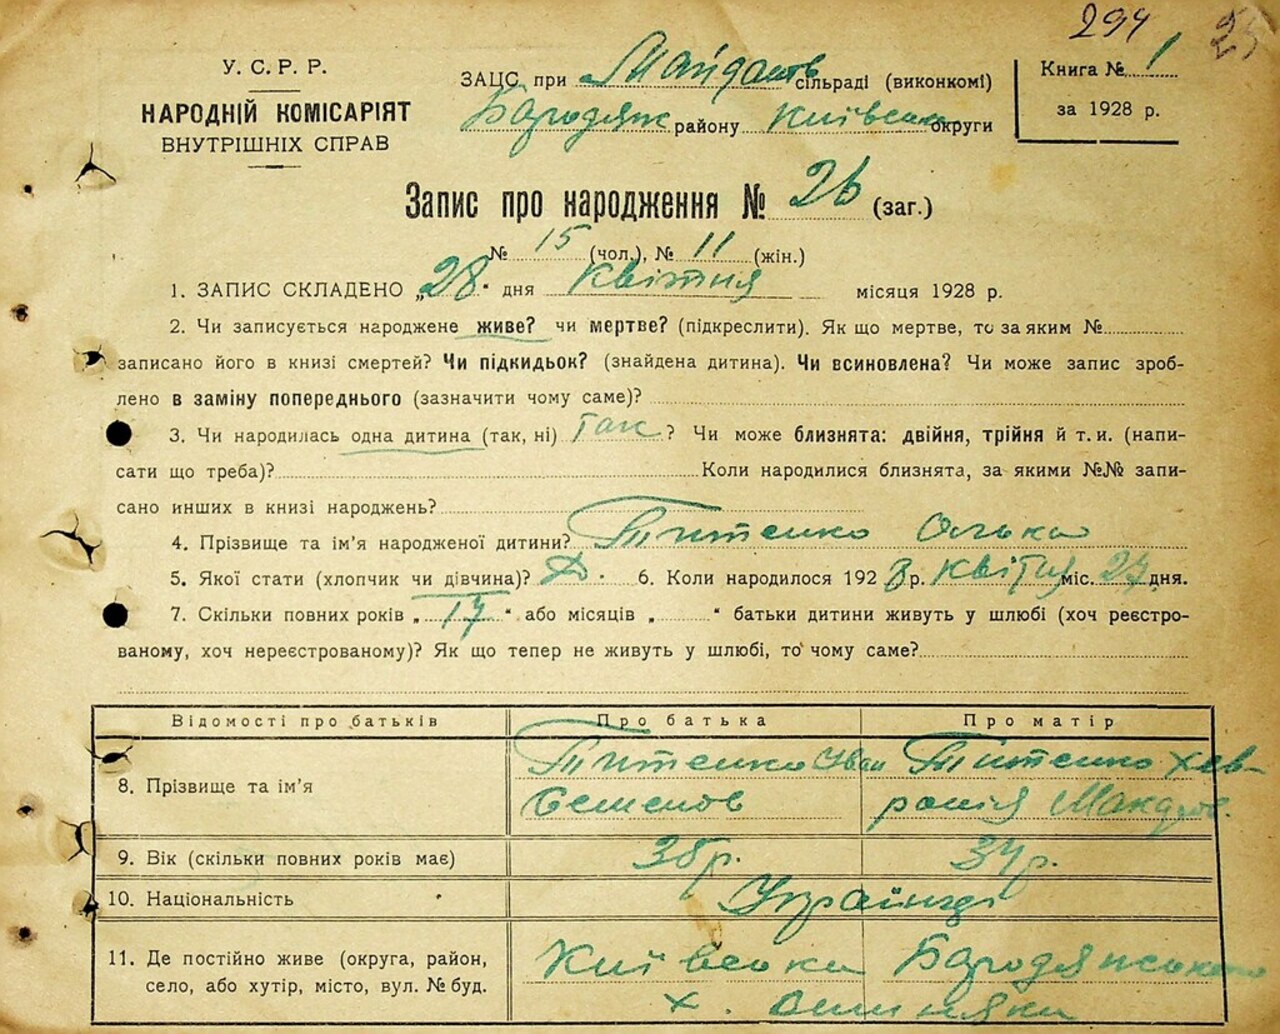 294 25
У. С. Р. Р.
НАРОДНІЙ КОМІСАРІЯТ
ВНУТРІШНІХ СПРАВ
ЗАЦС при Майданов сільраді (виконкомі)
Бародянк району Київська округи
Книга № 1
за 1928 р.
Запис про народження № 26 (заг.)
№ 15 (чол.), № 11 (жін.)
1. ЗАПИС СКЛАДЕНО „28“ дня Квітня місяця 1928 р.
2. Чи записується народжене живе? чи мертве? (підкреслити). Як що мертве, то за яким №
записано його в книзі смертей? Чи підкидьок? (знайдена дитина). Чи всиновлена? Чи може запис зроб-
лено в заміну попереднього (зазначити чому саме)?
3. Чи народилась одна дитина (так, ні) так ? Чи може близнята: двійня, трійня й т. и. (напи-
сати що треба)? Коли народилися близнята, за якими №№ запи-
сано инших в книзі народжень?
4. Прізвище та ім’я народженої дитини? Титенко Олька
5. Якої стати (хлопчик чи дівчина)? 6. Коли народилося 1928 р. Квітня міс. 27 дня.
7. Скільки повних років „17“ або місяців „ “ батьки дитини живуть у шлюбі (хоч реєстро-
ваному, хоч нереєстрованому)? Як що тепер не живуть у шлюбі, то чому саме?
Відомості про батьків Про батька Про матір
8. Прізвище та ім’я Титенко Іван Титенко Хев-
Семенов ронія Макдов.
9. Вік (скільки повних років має) 36 р. 34 р.
10. Національність Українці
11. Де постійно живе (округа, район, Київська Бародянського
село, або хутір, місто, вул. № буд. х.